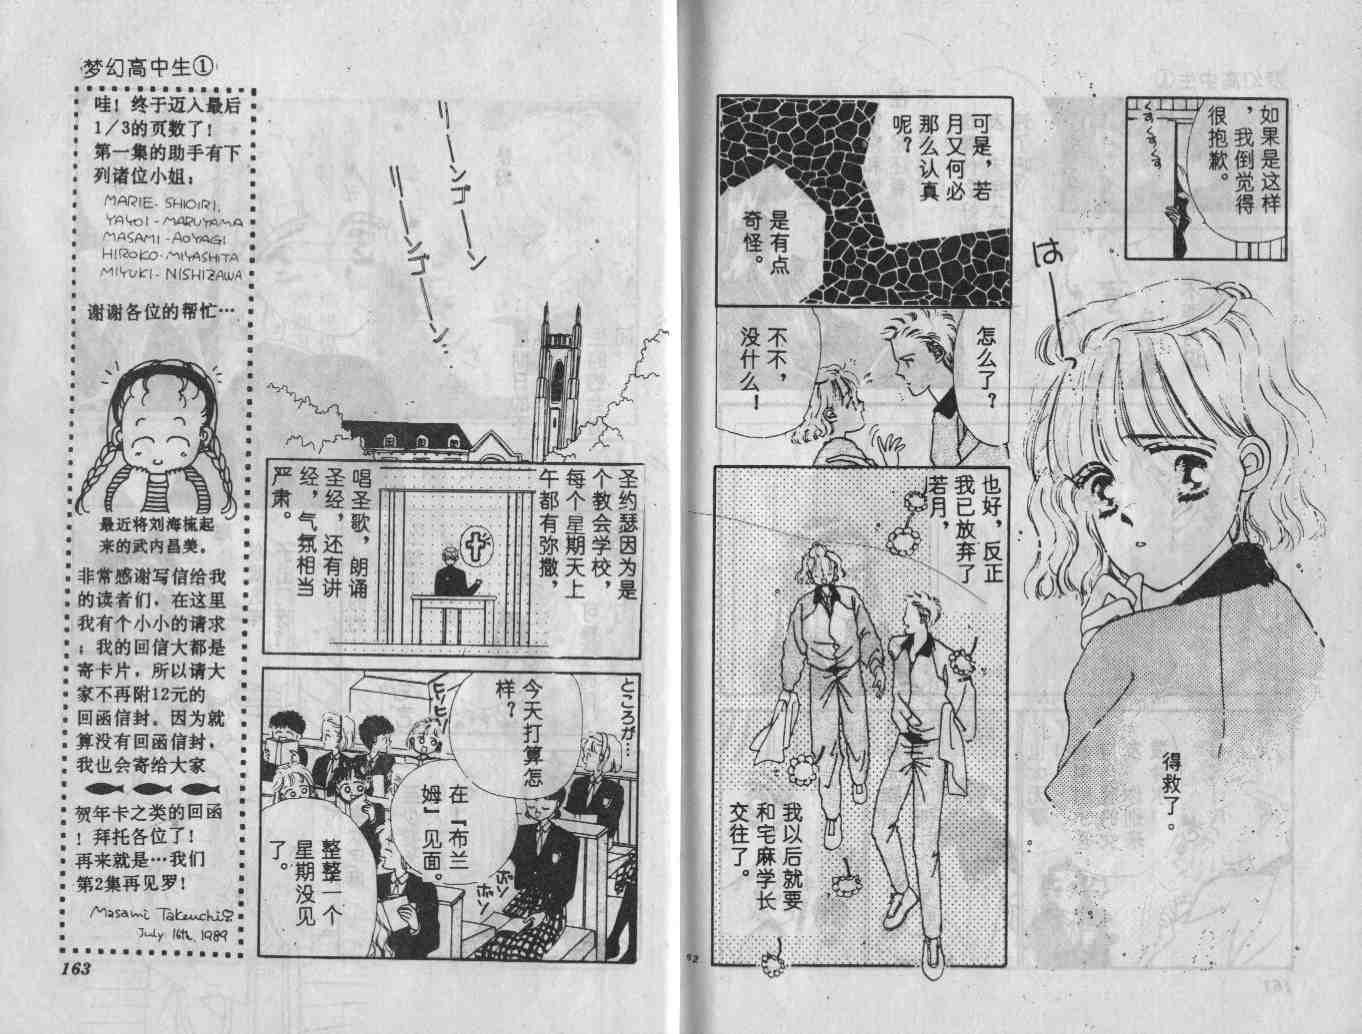 如果是这样
，我倒觉得
很抱歉。
くすくす
くすくす
は
得救了。
可是，若
月又何必
那么认真
呢？
是有点
奇怪。
怎么了？
不不，
没什么！
也好，反正
我已放弃了
若月，
我以后就要
和宅麻学长
交往了。
リーンゴーン
リーンゴーン…
圣约瑟因为是
个教会学校，
每个星期天上
午都有弥撒，
唱圣歌，朗诵
圣经，还有讲
经，气氛相当
严肃。
ところが…
ヒソヒソ
今天打算怎
样？
在『布兰
姆』见面。
ボソ
ボソ
整整一个
星期没见
了。
梦幻高中生①
哇！终于迈入最后
1/3的页数了！
第一集的助手有下
列诸位小姐：
MARIE-SHIOIRI.
YAYOI-MARUYAMA
MASAMI-AOYAGI
HIROKO-MIYASHITA
MIYUKI-NISHIZAWA
谢谢各位的帮忙…
最近将刘海梳起
来的武内昌美。
非常感谢写信给我
的读者们，在这里
我有个小小的请求
；我的回信大都是
寄卡片，所以请大
家不再附12元的
回函信封。因为就
算没有回函信封，
我也会寄给大家
贺年卡之类的回函
！拜托各位了！
再来就是…我们
第2集再见罗！
Masami Takeuchi
July 16th, 1989
163